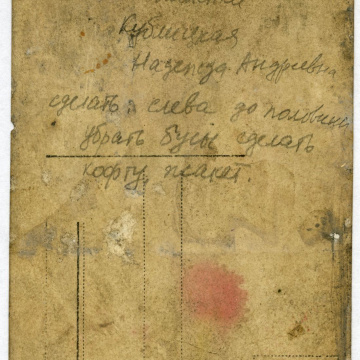 Кублицкая
Надежда Андреевна
сделать: слева до половины
убрать бусы сделать
кофту, жакет.